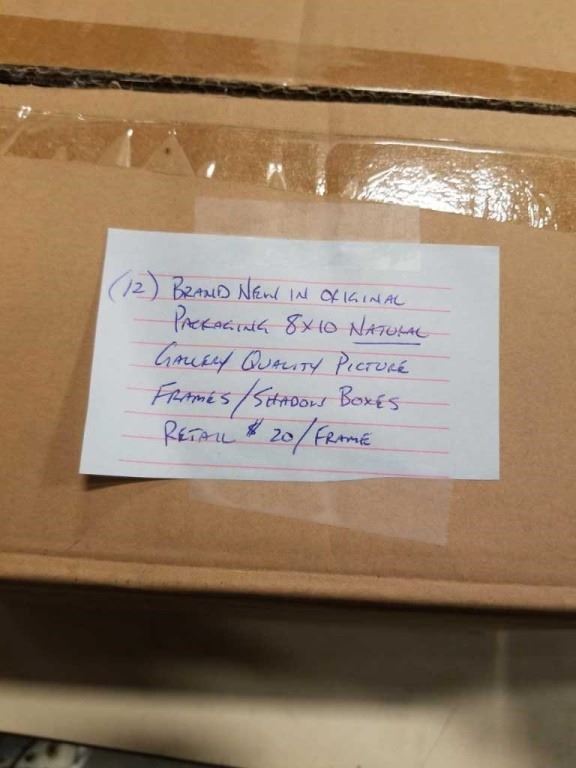 (12) BRAND NEW IN ORIGINAL
PACKAGING 8X10 NATURAL
GALLERY QUALITY PICTURE
FRAMES/SHADOW BOXES
RETAIL $20/FRAME